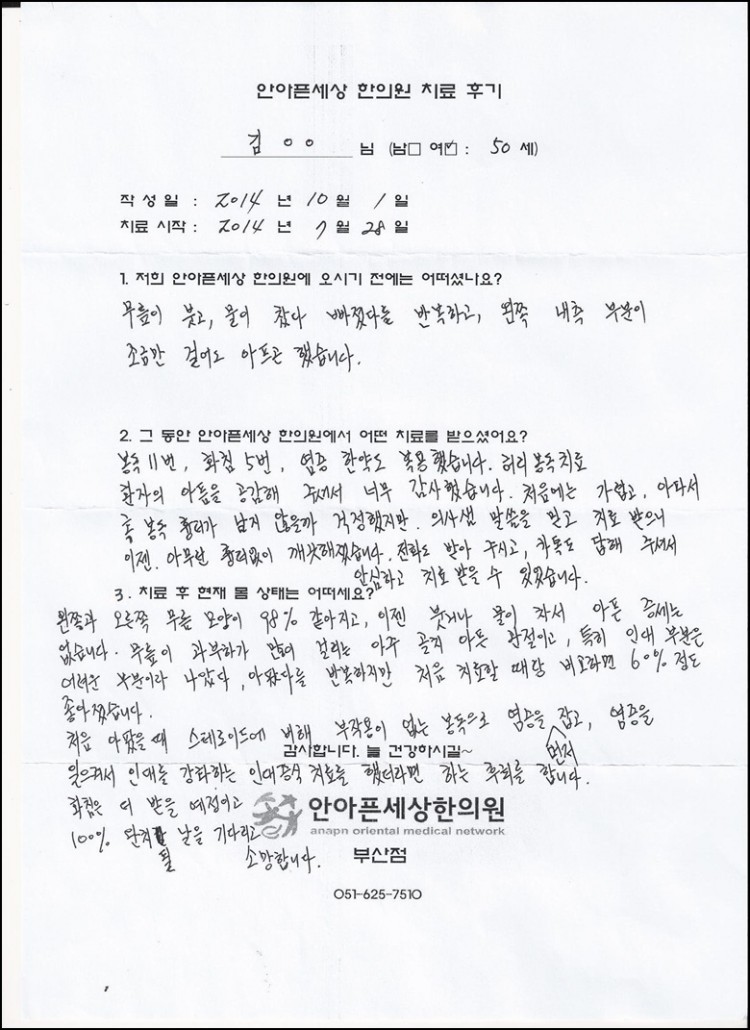 안아픈세상 한의원 치료 후기
김 ○ ○ 님 (남□ 여☑ : 50 세)
작 성 일 : 2014 년 10 월 1 일
치료 시작 : 2014 년 7 월 28 일
1. 저희 안아픈세상 한의원에 오시기 전에는 어떠셨나요?
무릎이 붓고, 물이 찼다 빠졌다를 반복하고, 왼쪽 내측 부분이
조금만 걸어도 아프곤 했습니다.
2. 그 동안 안아픈세상 한의원에서 어떤 치료를 받으셨어요?
봉독 11번, 화침 5번, 염증 한약도 복용했습니다. 허리 봉독치료
환자의 아픔을 공감해 주셔서 너무 감사했습니다. 처음에는 가렵고, 아파서
혹 봉독 흉터가 남지 않을까 걱정했지만 의사샘 말씀을 믿고 치료 받으니
이젠 아무런 흉터없이 깨끗해졌습니다. 전화도 받아 주시고, 카톡도 답해 주셔서
안심하고 치료 받을 수 있었습니다.
3. 치료 후 현재 몸 상태는 어떠세요?
왼쪽과 오른쪽 무릎 모양이 98% 같아지고, 이젠 붓거나 물이 차서 아픈 증세는
없습니다. 무릎이 과부하가 많이 걸리는 아주 골치 아픈 관절이고, 특히 인대 부분은
어려운 부분이라 나았다, 아팠다를 반복하지만 처음 치료할 때당 비교하면 60% 정도
좋아졌습니다.
처음 아팠을 때 스테로이드에 비해 부작용이 없는 봉독으로 염증을 먼저 잡고, 염증을
감사합니다. 늘 건강하시길~
일으켜서 인대를 강화하는 인대증식 치료를 했더라면 하는 후회를 합니다.
화침은 더 받을 예정이고
100% 완치될 날을 기다리고
소망합니다.
안아픈세상한의원
anapn oriental medical network
부산점
051-625-7510